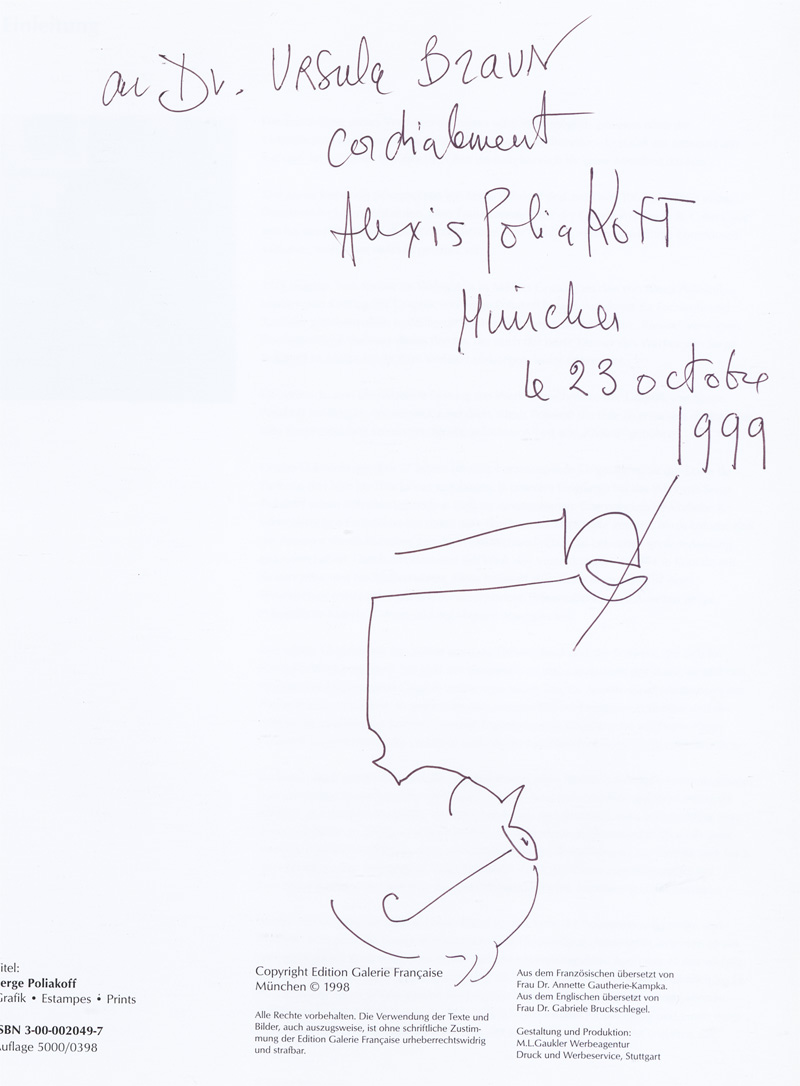 au Dr. Ursula Braun
cordialement
Alexis Poliakoff
München
le 23 octobre
1999
itel:
erge Poliakoff
Grafik • Estampes • Prints
SBN 3-00-002049-7
uflage 5000/0398
Copyright Edition Galerie Française
München © 1998
Alle Rechte vorbehalten. Die Verwendung der Texte und
Bilder, auch auszugsweise, ist ohne schriftliche Zustim-
mung der Edition Galerie Française urheberrechtswidrig
und strafbar.
Aus dem Französischen übersetzt von
Frau Dr. Annette Gautherie-Kampka.
Aus dem Englischen übersetzt von
Frau Dr. Gabriele Bruckschlegel.
Gestaltung und Produktion:
M.L.Gaukler Werbeagentur
Druck und Werbeservice, Stuttgart